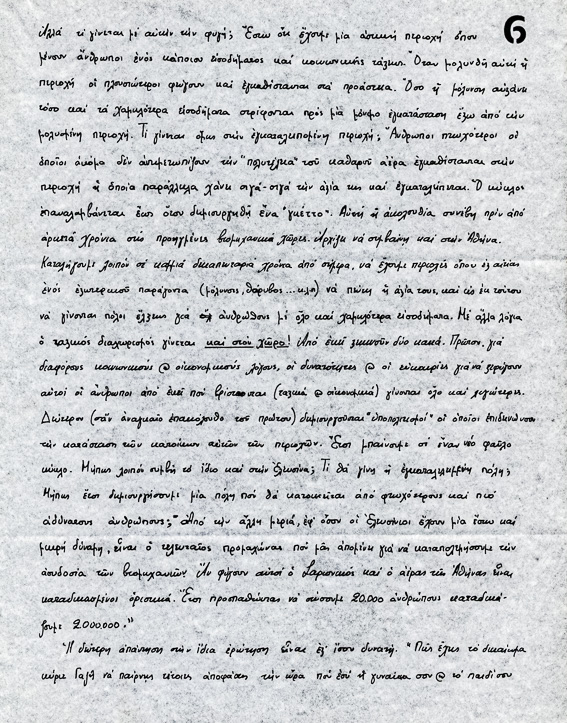 6
Ἀλλά τί γίνεται μέ αὐτήν τήν φυγή; Ἔστω ὅτι ἔχουμε μία ἀστική περιοχή ὅπου
μένουν ἄνθρωποι ἑνός κάποιου εἰσοδήματος καί κοινωνικῆς τάξεως. Ὅταν μολυνθῆ αὐτή ἡ
περιοχή οἱ πλουσιώτεροι φεύγουν καί ἐγκαθίστανται στά προάστεια. Ὅσο ἡ μόλυνση αὐξάνει
τόσο καί τά χαμηλότερα εἰσοδήματα στρέφονται πρός μιά μόνιμο ἐγκατάσταση ἔξω ἀπό τήν
μολυσμένη περιοχή. Τί γίνεται ὅμως στήν ἐγκαταλειπομένη περιοχή; Ἄνθρωποι πτωχότεροι οἱ
ὁποῖοι ἀκόμα δέν ἀντιμετωπίζουν τήν "πολυτέλεια" τοῦ καθαροῦ ἀέρα ἐγκαθίστανται στήν
περιοχή ἡ ὁποία παράλληλα χάνει σιγά-σιγά τήν ἀξία της καί ἐγκαταλείπεται. Ὁ κύκλος
ἐπαναλαμβάνεται ἕως ὅτου δημιουργηθῆ ἕνα "γκέττο". Αὐτή ἡ ἀκολουθία συνέβη πρίν ἀπό
ἀρκετά χρόνια στίς προηγμένες βιομηχανικά χῶρες. Ἀρχίζει νά συμβαίνη καί στήν Ἀθήνα.
Καταλήγουμε λοιπόν σέ καμμιά δεκαπενταριά χρόνια ἀπό σήμερα, νά ἔχουμε περιοχές ὅπου ἐξ αἰτίας
ἑνός ἐξωτερικοῦ παράγοντα (μόλυνσις, θόρυβος... κ.λπ) νά πέση ἡ ἀξία τους, καί ὡς ἐκ τούτου
νά γίνονται πόλοι ἕλξεως γιά ἀνθρώπους μέ ὅλο καί χαμηλότερα εἰσοδήματα. Μέ ἄλλα λόγια
ὁ ταξικός διαχωρισμός γίνεται καί στόν χῶρο! Ἀπό ἐκεῖ ξεκινοῦν δύο κακά. Πρῶτον, γιά
διαφόρους κοινωνικούς @ οἰκονομικούς λόγους, οἱ δυνατότητες @ οἱ εὐκαιρίες γιά νά ξεφύγουν
αὐτοί οἱ ἄνθρωποι ἀπό ἐκεῖ πού βρίσκονται (ταξικά @ οἰκονομικά) γίνονται ὅλο καί λιγώτερες.
Δεύτερον (σάν ἀναγκαῖο ἐπακόλουθο τοῦ πρώτου) δημιουργοῦνται "ὑποπολιτισμοί" οἱ ὁποῖοι ἐπιδεινώνουν
τήν κατάσταση τῶν κατοίκων αὐτῶν τῶν περιοχῶν. Ἔτσι μπαίνουμε σέ ἕναν νέο φαῦλο
κύκλο. Μήπως λοιπόν συμβῆ τό ἴδιο καί στήν Ἐλευσίνα; Τί θά γίνη ἡ ἐγκαταλελειμμένη πόλη;
Μήπως ἔτσι δημιουργήσουμε μία πόλη πού θά κατοικεῖται ἀπό φτωχότερους καί πιό
ἀδύνατους ἀνθρώπους; Ἀπό τήν ἄλλη μεριά, ἐφ' ὅσον οἱ Ἐλευσίνιοι ἔχουν μία ἔστω καί
μικρή δύναμη, εἶναι ὁ τελευταῖος προμαχώνας πού μᾶς ἀπομένει γιά νά καταπολεμήσουμε τήν
ἀσυδοσία τῶν βιομηχανιῶν. Ἄν φύγουν αὐτοί ὁ Σαρωνικός καί ὁ ἀέρας τῆς Ἀθήνας εἶναι
καταδικασμένοι ὁριστικά. Ἔτσι προσπαθώντας νά σώσουμε 20.000 ἀνθρώπους καταδικά-
ζουμε 2.000.000."
Ἡ δεύτερη ἀπάντηση στήν ἴδια ἐρώτηση εἶναι ἐξ' ἴσου δυνατή. "Πῶς ἔχεις τό δικαίωμα
κύριε νά παίρνης τέτοιες ἀποφάσεις τήν ὥρα πού ἐσύ ἡ γυναίκα σου @ τό παιδί σου